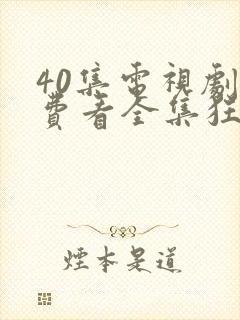 40集電視劇
費看全集狂
煙本是道